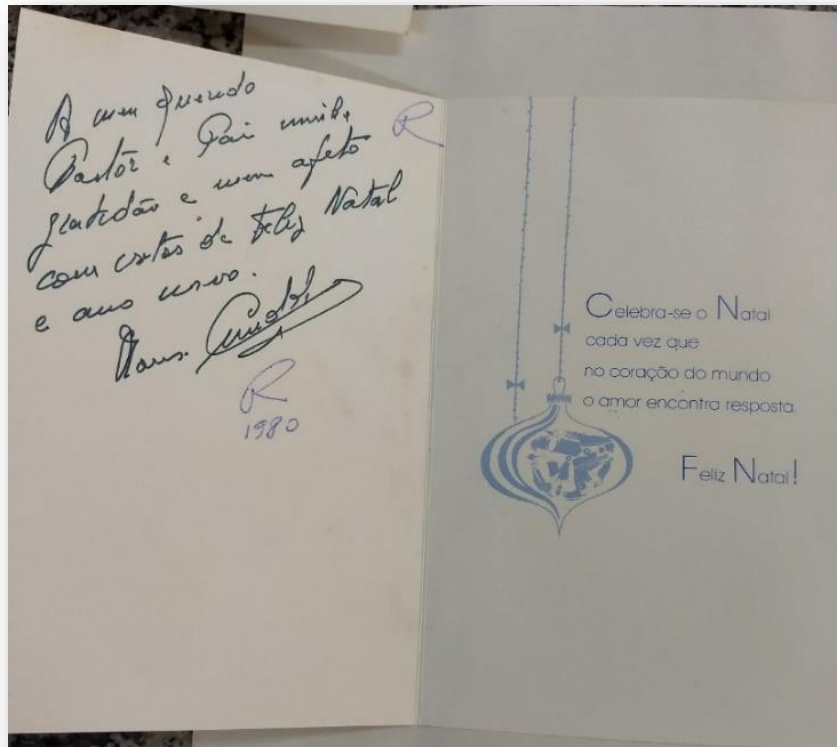 A meu querido
Pastôr e Pai
gratidão e meu afeto
com votos de Feliz Natal
e ano novo.
Mons.
R
R
1980
Celebra-se o Natal
cada vez que
no coração do mundo
o amor encontra resposta.
Feliz Natal!